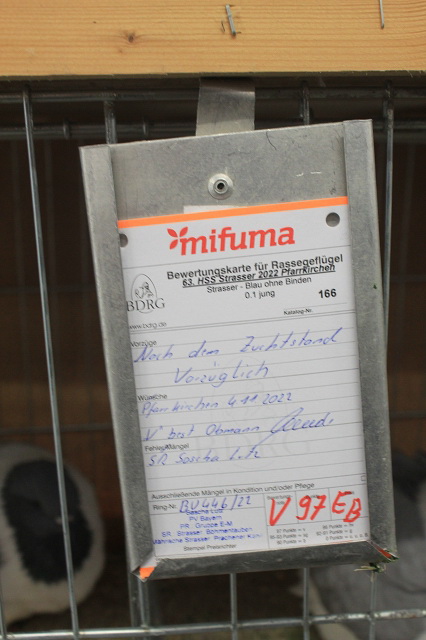 mifuma
Bewertungskarte für Rassegeflügel
63. HSS Strasser 2022 Pfarrkirchen
Strasser - Blau ohne Binden
0.1 jung
166
Katalog-Nr.
BDRG
www.bdrg.de
Vorzüge
Nach dem Zuchtstand
Vorzüglich
Wünsche
Pfarrkirchen 4.11.2022
V best Obmann
Fehler/Mängel
SR Sascha Lutz
Ausschließende Mängel in Kondition und/oder Pflege
Ring-Nr. BU446/22
V 97 EB
Sascha Lutz
PV Bayern
PR - Gruppe E-M
SR Strasser, Böhmentauben
Stempel Preisrichter